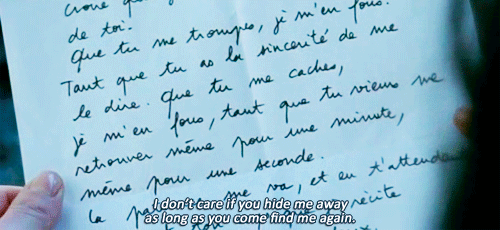 de toi.
Que tu me trompes, je m'en fous.
Tant que tu as la sincérité de me
le dire. Que tu me caches,
je m'en fous, tant que tu viens me
retrouver même pour une minute,
même pour une seconde.
la me va, et en t'attendant
récite
I don't care if you hide me away
as long as you come find me again.